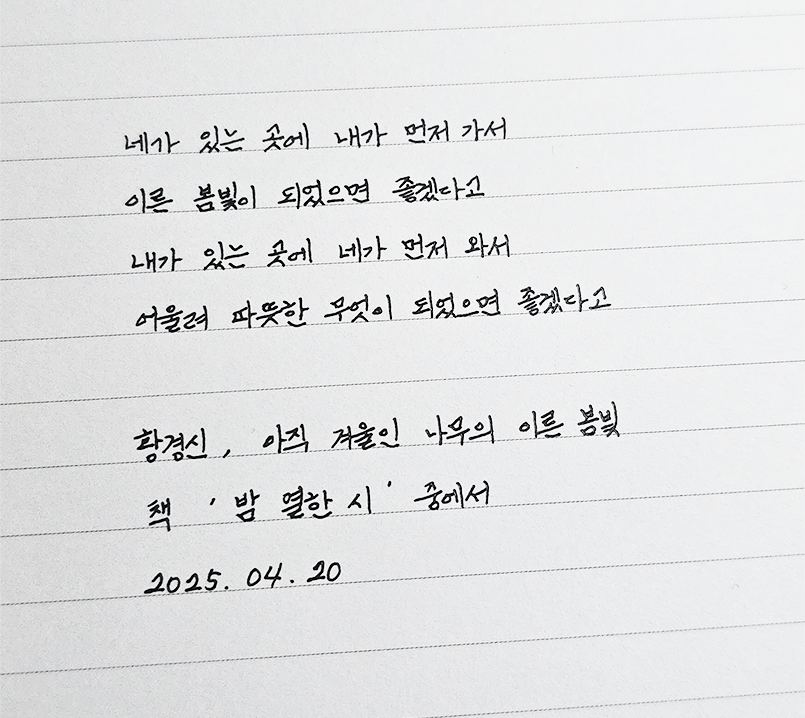 네가 있는 곳에 내가 먼저 가서
이른 봄빛이 되었으면 좋겠다고
내가 있는 곳에 네가 먼저 와서
어울려 따뜻한 무엇이 되었으면 좋겠다고
황경신, 아직 겨울인 나무의 이른 봄빛
책 '밤 열한 시' 중에서
2025. 04. 20